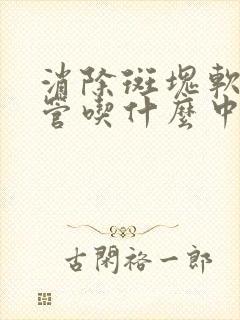 消除斑塊軟
管喫什麼中
古閑裕一郎